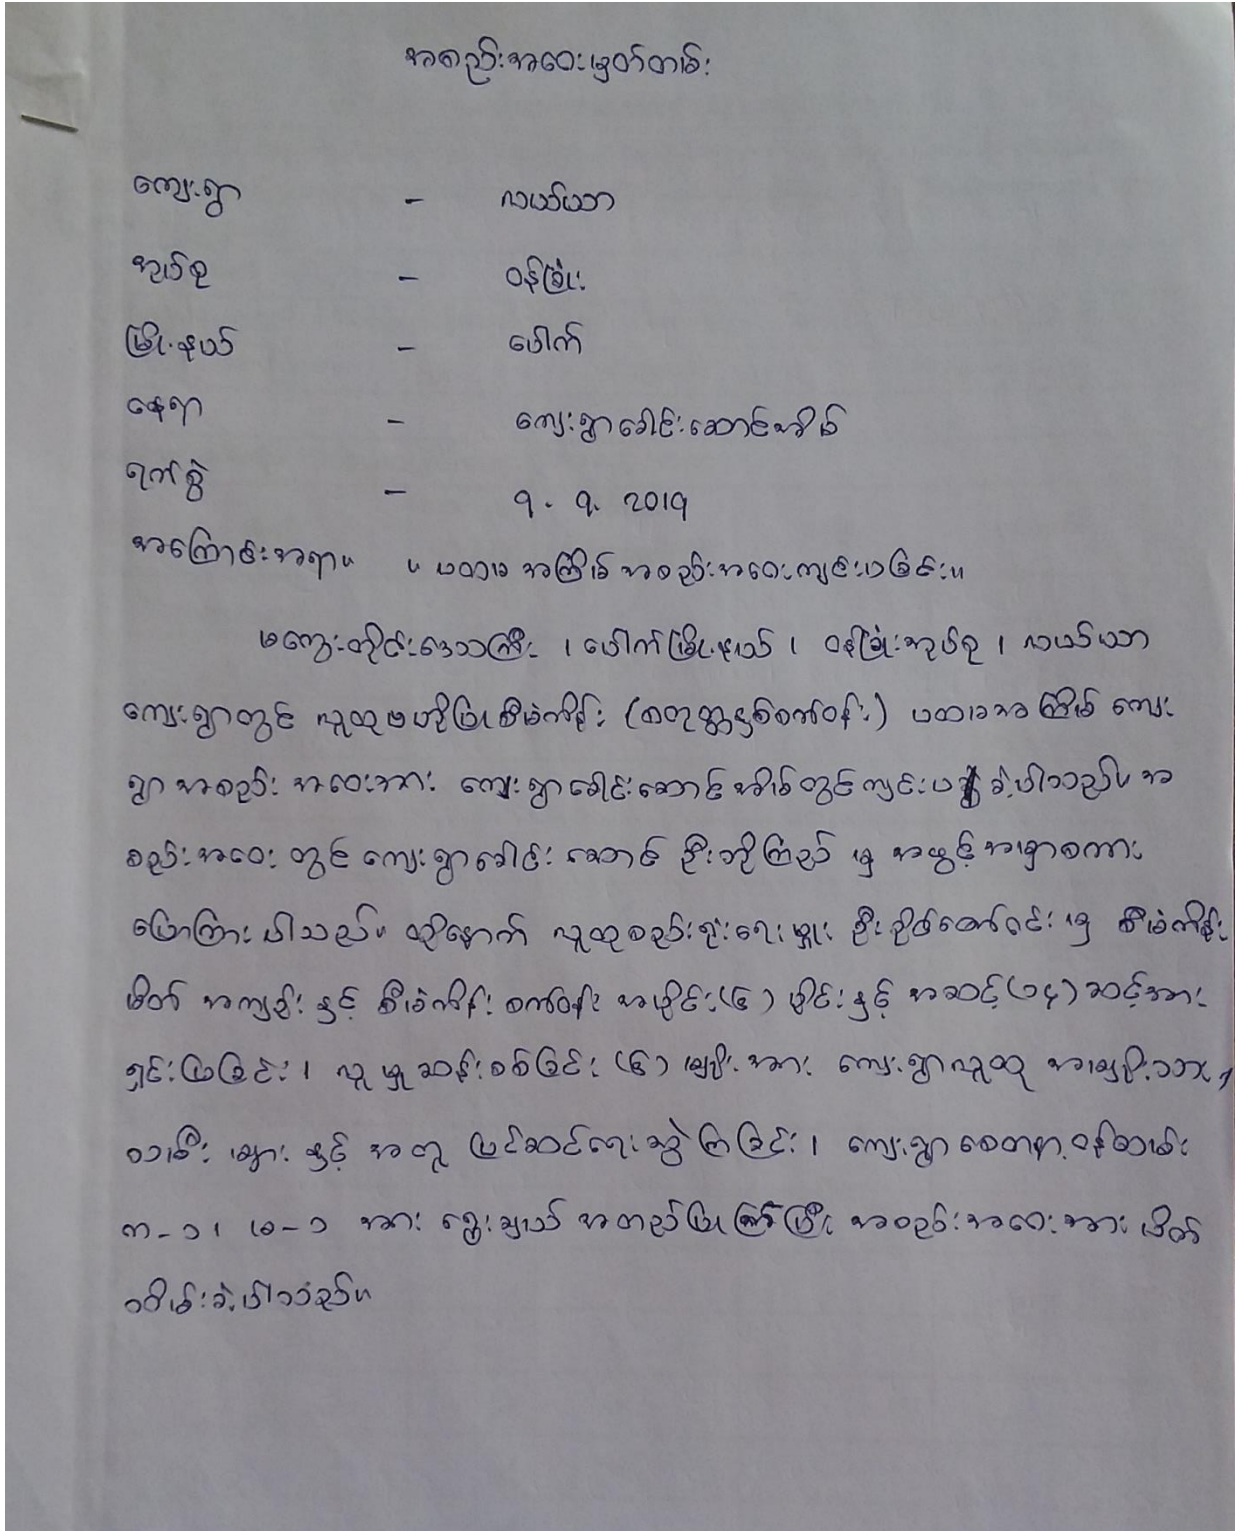 အစည်းအဝေးမှတ်တမ်း
ကျေးရွာ - လယ်ယာ
အုပ်စု - ဝန်ခြုံး
မြို့နယ် - ပေါက်
နေရာ - ကျေးရွာခေါင်းဆောင်အိမ်
ရက်စွဲ - ၇. ၇. ၂၀၁၇
အကြောင်းအရာ။ ။ ပထမအကြိမ် အစည်းအဝေးကျင်းပခြင်း။
မကွေးတိုင်းဒေသကြီး ၊ ပေါက်မြို့နယ် ၊ ဝန်ခြုံးအုပ်စု ၊ လယ်ယာ
ကျေးရွာတွင် လူထုဗဟိုပြုစီမံကိန်း (စတုတ္ထနှစ်စက်ဝန်း) ပထမအကြိမ် ကျေး
ရွာ အစည်း အဝေးအား ကျေးရွာခေါင်းဆောင်အိမ်တွင်ကျင်းပ ခဲ့ပါသည်။ အ
စည်းအဝေး တွင် ကျေးရွာခေါင်း ဆောင် ဦးဘိုကြည် မှ အဖွင့်အမှာစကား
ပြောကြားပါသည်။ ထို့နောက် လူထုစည်းရုံးရေးမှူး ဦး မှ စီမံကိန်း
မိတ် အကျဉ်း နှင့် စီမံကိန်း စက်ဝန်း အပိုင်း(၆) ပိုင်း နှင့် အဆင့်(၁၄) ဆင့်အား
ရှင်းပြခြင်း ၊ လူမှုဆန်းစစ်ခြင်း (၆) မျိုး အား ကျေးရွာလူထု အမျိုးသား ၊
သမီး များ နှင့် အတူ ပြင်ဆင်ရေးဆွဲကြခြင်း ၊ ကျေးရွာစေတနာ့ဝန်ထမ်း
က-၁၊ မ-၁ အား ရွေးချယ် အတည်ပြုကြပြီး အစည်းအဝေးအား ပိတ်
သိမ်းခဲ့ပါသည်။